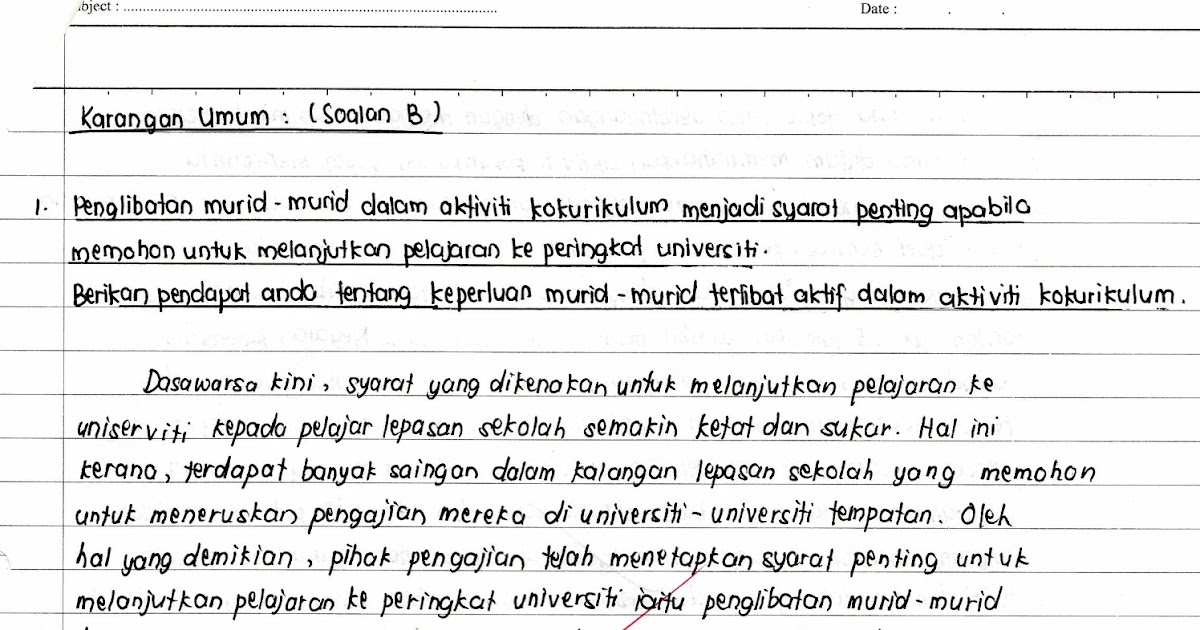 bject :
Date :
Karangan Umum : (Soalan B)
1. Penglibatan murid-murid dalam aktiviti kokurikulum menjadi syarat penting apabila
memohon untuk melanjutkan pelajaran ke peringkat universiti.
Berikan pendapat anda tentang keperluan murid-murid terlibat aktif dalam aktiviti kokurikulum.
Dasawarsa kini, syarat yang dikenakan untuk melanjutkan pelajaran ke
uniserviti kepada pelajar lepasan sekolah semakin ketat dan sukar. Hal ini
kerana, terdapat banyak saingan dalam kalangan lepasan sekolah yang memohon
untuk meneruskan pengajian mereka di universiti-universiti tempatan. Oleh
hal yang demikian, pihak pengajian telah menetapkan syarat penting untuk
melanjutkan pelajaran ke peringkat universiti iaitu penglibatan murid-murid